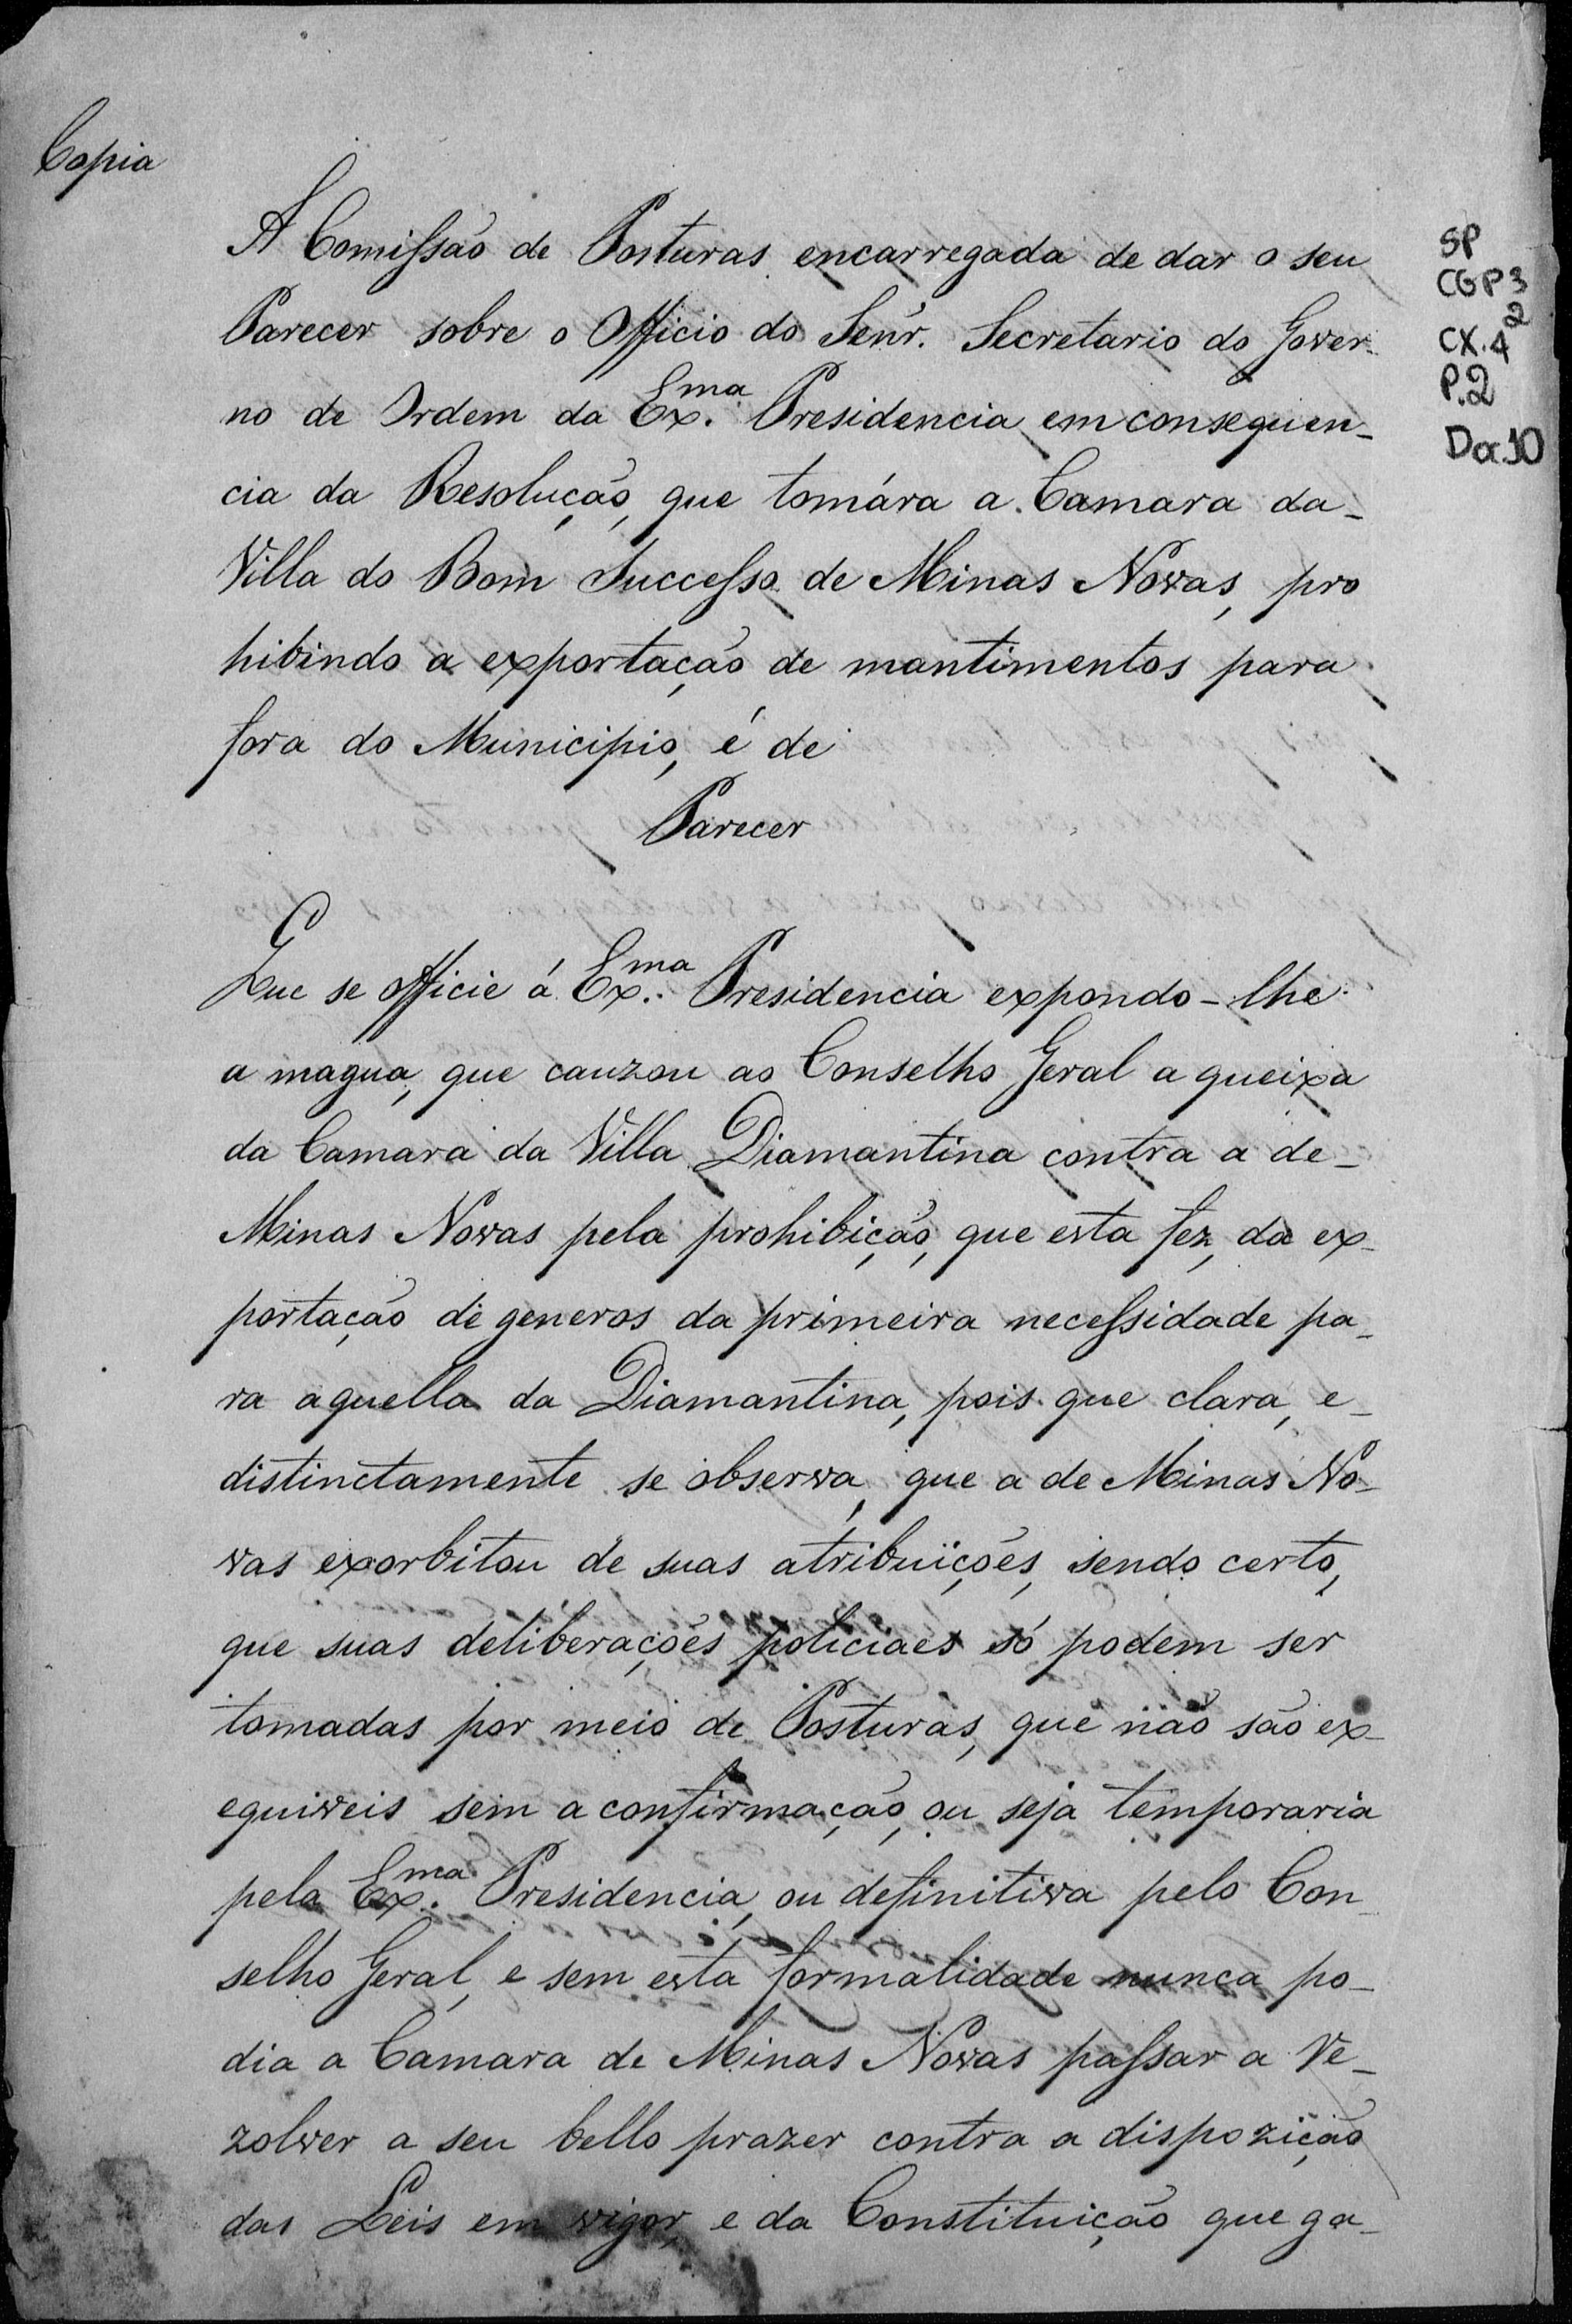 Copia
A Comissão de Posturas encarregada de dar o seu
Parecer sobre o Officio do Senr. Secretario do Gover-
no de Ordem da Ex.ma Presidencia em consequen-
cia da Resolução, que tomára a Camara da-
Villa do Bom Successo de Minas Novas, pro
hibindo a exportação de mantimentos para
fora do Municipio, é de
Parecer
Que se officie á Ex.ma Presidencia expondo-lhe
a magua, que cauzou ao Conselho Geral a queixa
da Camara da Villa Diamantina contra a de-
Minas Novas pela prohibição, que esta fez, da ex-
portação de generos da primeira necessidade pa-
ra aquella da Diamantina, pois que clara, e-
distinctamente se observa, que a de Minas No-
vas exorbitou de suas atribuições, sendo certo,
que suas deliberações policiaes só podem ser
tomadas por meio de Posturas, que não são ex-
equiveis sem a confirmação, ou seja temporaria
pela Ex.ma Presidencia, ou definitiva pelo Con-
selho Geral, e sem esta formalidade nunca po-
dia a Camara de Minas Novas passar a re-
zolver a seu bello prazer contra a dispozição
das Leis em vigor, e da Constituição que ga-
SP
CGP3
2
CX.4
P.2
Doc.10